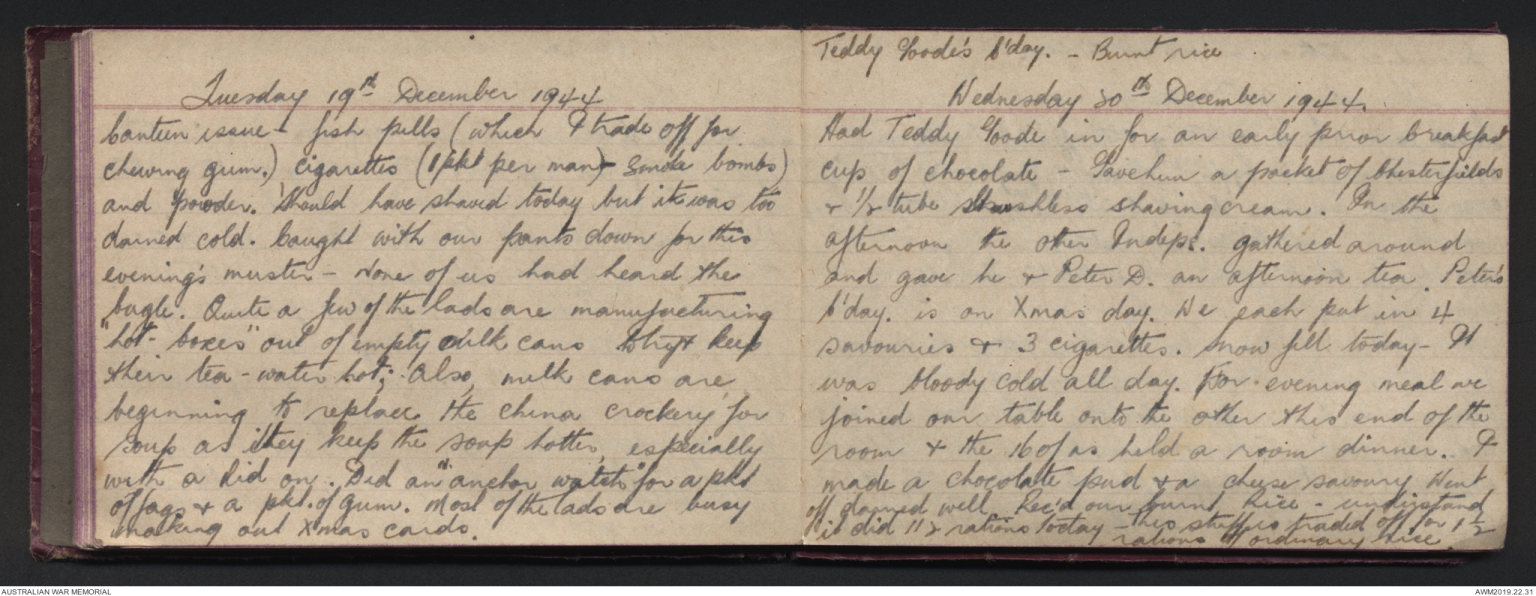 Tuesday 19th December 1944
Canteen issue - fish pills (which I trade off for
chewing gum.) cigarettes (1 pkt per man) + smoke bombs)
and powder. Should have shaved today but it was too
darned cold. Caught with our pants down for this
evening's muster - None of us had heard the
bugle. Quite a few of the lads are manufacturing
"hot-boxes" out of empty milk cans to try & keep
their tea-water hot; Also, milk cans are
beginning to replace the china crockery for
soup as they keep the soup hotter, especially
with a lid on. Did an "anchor watch" for a pkt
of fags & a pkt. of gum. Most of the lads are busy
making out Xmas cards.
Teddy Goode's b'day. - Burnt rice
Wednesday 20th December 1944.
Had Teddy Goode in for an early prior breakfast
cup of chocolate - Gave him a packet of Chesterfields
& 1/2 tube brushless shaving cream. In the
afternoon the other Indeps. gathered around
and gave he & Peter D. an afternoon tea. Peter's
b'day. is on Xmas day. We each put in 4
savouries & 3 cigarettes. Snow fell today - It
was bloody cold all day. For evening meal we
joined our table onto the other this end of the
room & the 16 of us held a room dinner. I
made a chocolate pud & a cheese savoury Went
off darned well. Rec'd our burnt Rice - understand
it did 11½ rations today - this stuff is traded off for 1½
rations of ordinary rice.
AUSTRALIAN WAR MEMORIAL
AWM2019.22.31